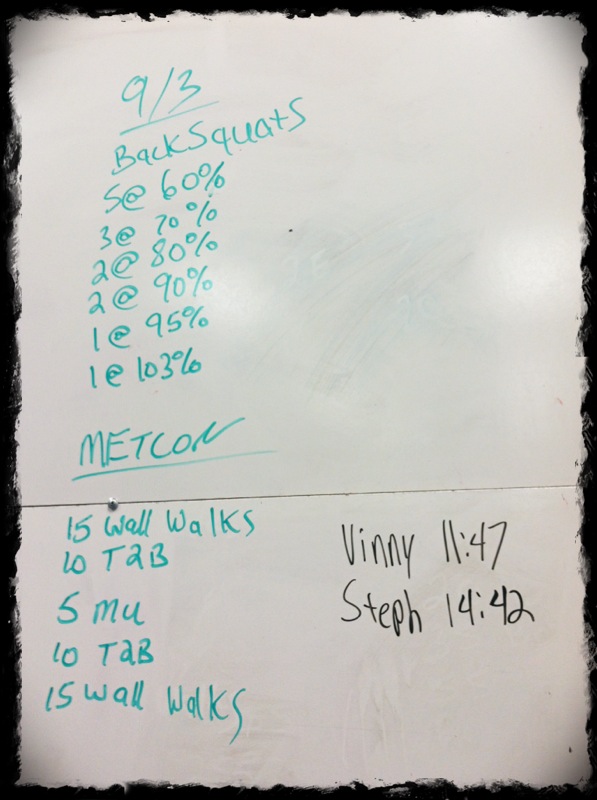 9/3
BackSquats
5@ 60%
3@ 70%
2@ 80%
2@ 90%
1@ 95%
1@ 103%
METCON
15 Wall Walks
10 T2B
5 MU
10 T2B
15 Wall Walks
Vinny 11:47
Steph 14:42